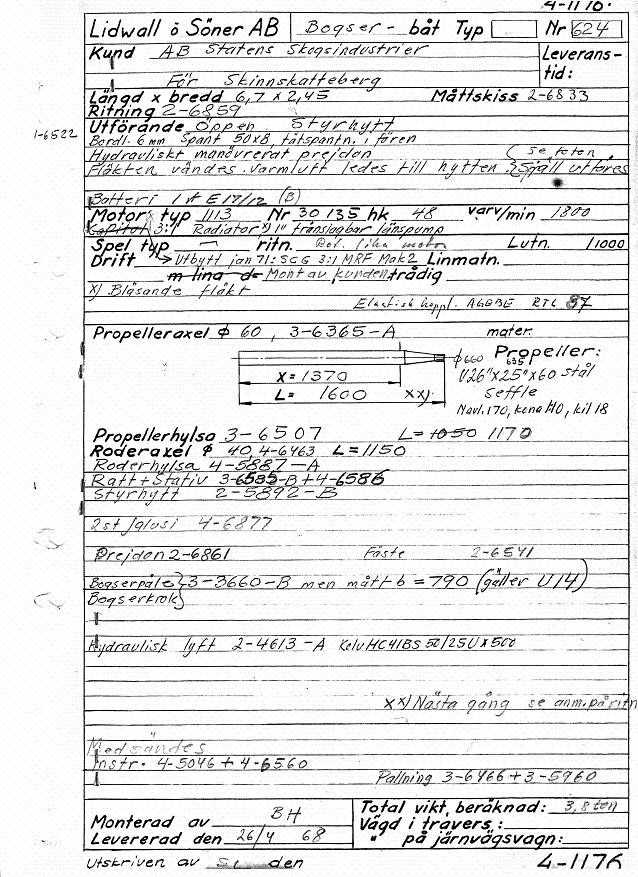 4-1176.
Lidwall & Söner AB Bogser - båt Typ Nr 624
Kund AB Statens Skogsindustrier Leverans-
tid:
För Skinnskatteberg
Längd x bredd 6,7 x 2,45 Måttskiss 2-6833
Ritning 2-6859
1-6522 Utförande Öppen Styrhytt
Bordl. 6mm Spant 50x8, tätspantn. i fören
Hydrauliskt manövrerat prejdon (se foten
Fläkten vändes. Varmluft ledes till hytten. Spjäll utföres
Batteri 1 st E17/12 (B)
Motor typ 1113 Nr 30 135 hk 48 varv/min 1800
Capitol 3:1 Radiator x) 1" frånslagbar länspump
Spel typ — ritn. Rel. lika motor Lutn. /1000
Drift Utbytt jan 71: SCG 3:1 MRF Mak2 Linmatn.
m lina d= Mont av kunden trådig
x) Blåsande fläkt
Elastisk koppl. AGEBE RTL 87
Propelleraxel φ 60, 3-6365-A mater.
φ 660 Propeller:
635
X = 1370 V26"x25"x60 stål
L = 1600 xx) Seffle
Navl. 170, kona HO, kil 18
Propellerhylsa 3-6507 L= 1050 1170
Roderaxel φ 40, 4-6463 L=1150
Roderhylsa 4-5887-A
Ratt + Stativ 3-6585-B + 4-6586
Styrhytt 2-5892-B
2st Jalusi 4-6877
Prejdon 2-6861 Fäste 2-6541
Bogserpåle 3-3660-B men mått b = 790 (gäller U14)
Bogserkrok
Hydraulisk lyft 2-4613-A Kolv HC41BS 50/25U x 500
xx) Nästa gång se anm. på ritn
Medsändes
Instr. 4-5046 + 4-6560
Pallning 3-6466 + 3-5960
Monterad av BH Total vikt, beräknad: 3,8 ton
Vägd i travers:
Levererad den 26/4 68 " på järnvägsvagn:
Utskriven av den 4-1176